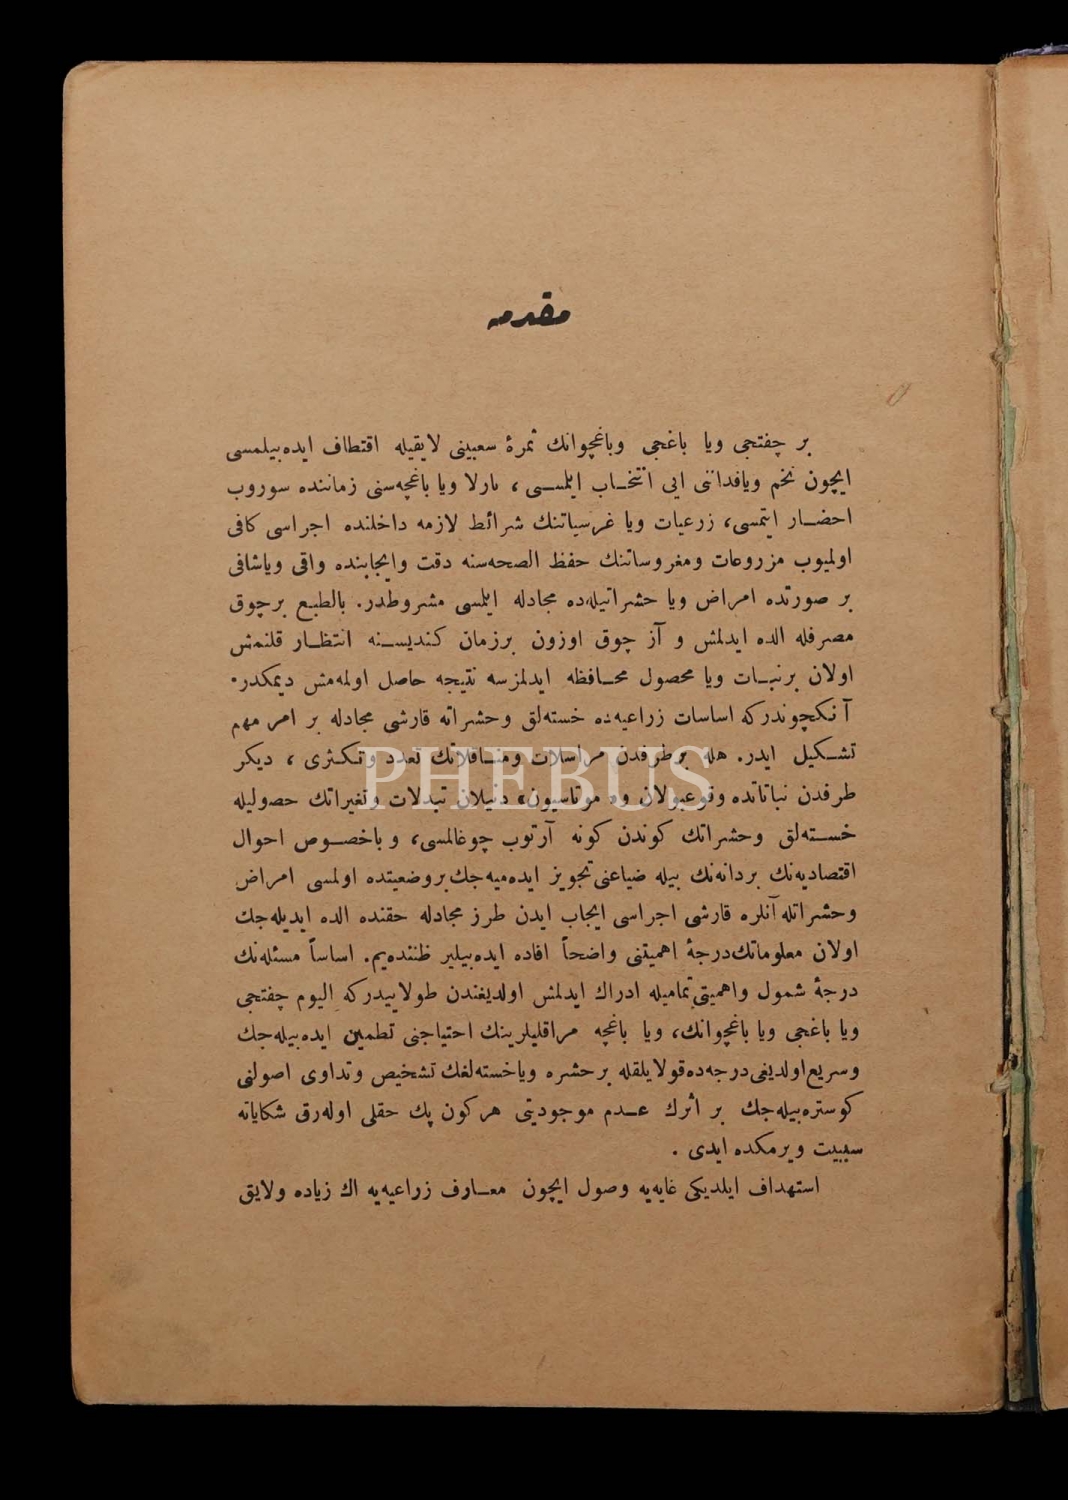 مقدمه
بر چفتجی ویا باغجی وباغچوانك ثمرهٔ سعیینی لایقیله اقتطاف ایده‌بیلمسی
ایچون تخم ویافداننی ایی انتخاب ایلمسی ، تارلا ویا باغچه‌سنی زماننده سوروب
احضار ایتمسی، زرعیات ویا غرسیاتنك شرائط لازمه داخلنده اجراسی كافی
اولمیوب مزروعات ومغروساتنك حفظ الصحه‌سنه دقت وایجابنده واقی ویاشافی
بر صورتده امراض ویا حشراتیله‌ده مجادله ایلمسی مشروطدر. بالطبع برچوق
مصرفله الده ایدلمش و آز چوق اوزون برزمان كندیسنه انتظار قلنمش
اولان برنبات ویا محصول محافظه ایدلمزسه نتیجه حاصل اولمه‌مش دیمكدر.
آنكچوندركه اساسات زراعیه‌ده خسته‌لق وحشراته قارشی مجادله بر امر مهم
تشكیل ایدر. هله برطرفدن مراسلات ومناقلاتك تعدد وتكثری ، دیكر
طرفدن نباتاتده وقوعبولان و« موتاسیون» دنیلان تبدلات وتغیراتك حصولیله
خسته‌لق وحشراتك كوندن كونه آرتوب چوغالمسی، وباخصوص احوال
اقتصادیه‌نك بردانه‌نك بیله ضیاعنی تجویز ایده‌میه‌جك‌بروضعیتده اولمسی امراض
وحشراتله آنلره قارشی اجراسی ایجاب ایدن طرز مجادله حقنده الده ایدیله‌جك
اولان معلوماتك‌درجهٔ اهمیتنی واضحاً افاده ایده‌بیلیر ظننده‌یم. اساساً مسئله‌نك
درجهٔ شمول واهمیتی‌تمامیله ادراك ایدلمش اولدیغندن طولاییدركه الیوم چفتجی
ویا باغجی ویا باغچوانك، ویا باغچه مراقلیلرینك احتیاجنی تطمین ایده‌بیله‌جك
وسریع‌اولدیغی‌درجه‌ده‌قولایلقله برحشره ویاخسته‌لغك تشخیص وتداوی اصولنی
كوستره‌بیله‌جك بر اثرك عدم موجودیتی هركون پك حقلی اوله‌رق شكایاته
سببیت ویرمكده ایدی .
استهداف ایلدیكی غایه‌یه وصول ایچون معارف زراعیه‌یه اك زیاده ولایق
PHEBUS